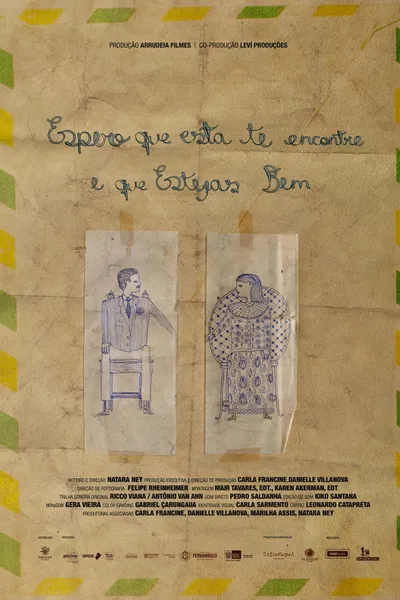 PRODUÇÃO ARRUDEIA FILMES | CO-PRODUÇÃO LEVI PRODUÇÕES
Espero que esta te encontre
e que Estejas Bem
ROTEIRO E DIREÇÃO NATARA NEY PRODUÇÃO EXECUTIVA E DIREÇÃO DE PRODUÇÃO CARLA FRANCINE, DANIELLE VILLANOVA
DIREÇÃO DE FOTOGRAFIA FELIPE RHEINHEIMER MONTAGEM MAIR TAVARES, EDT., KAREN AKERMAN, EDT
TRILHA SONORA ORIGINAL RICCO VIANA / ANTÔNIO VAN AHN SOM DIRETO PEDRO SALDANHA EDIÇÃO DE SOM KIKO SANTANA
MIXAGEM GERA VIEIRA COLOR GRADING GABRIEL ÇARUNGAUA IDENTIDADE VISUAL CARLA SARMENTO CARTAZ LEONARDO CATAPRETA
PRODUTORAS ASSOCIADAS CARLA FRANCINE, DANIELLE VILLANOVA, MARILHA ASSIS, NATARA NEY
PERNAMBUCO